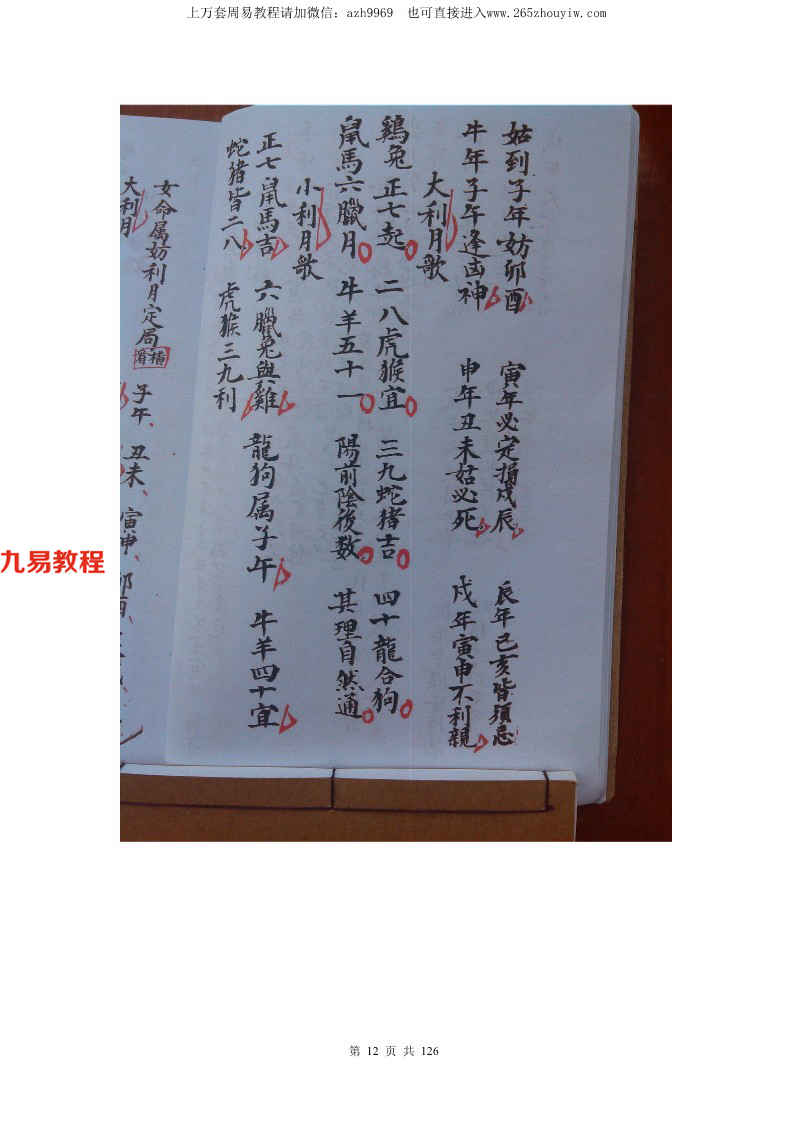 上万套周易教程请加微信：azh9969 也可直接进入www.265zhouyiw.com
姑到子年妨卯酉 寅年必定損戍辰 辰年巳亥皆須忌
牛年子午逢凶神 申年丑未姑必死 戍年寅申不利親
大利月歌
鷄兔正七起 二八虎猴宜 三九蛇猪吉 四十龍合狗
鼠馬六臘月 牛羊五十一 陽前陰後数 其理自然通
小利月歌
正七鼠馬吉 六臘兔與雞 龍狗属子午 牛羊四十宜
蛇猪皆二八 虎猴三九利
女命属妨利月定局 橫看
大利月 子午、丑未、寅申、
九易教程
第 12 页 共 126